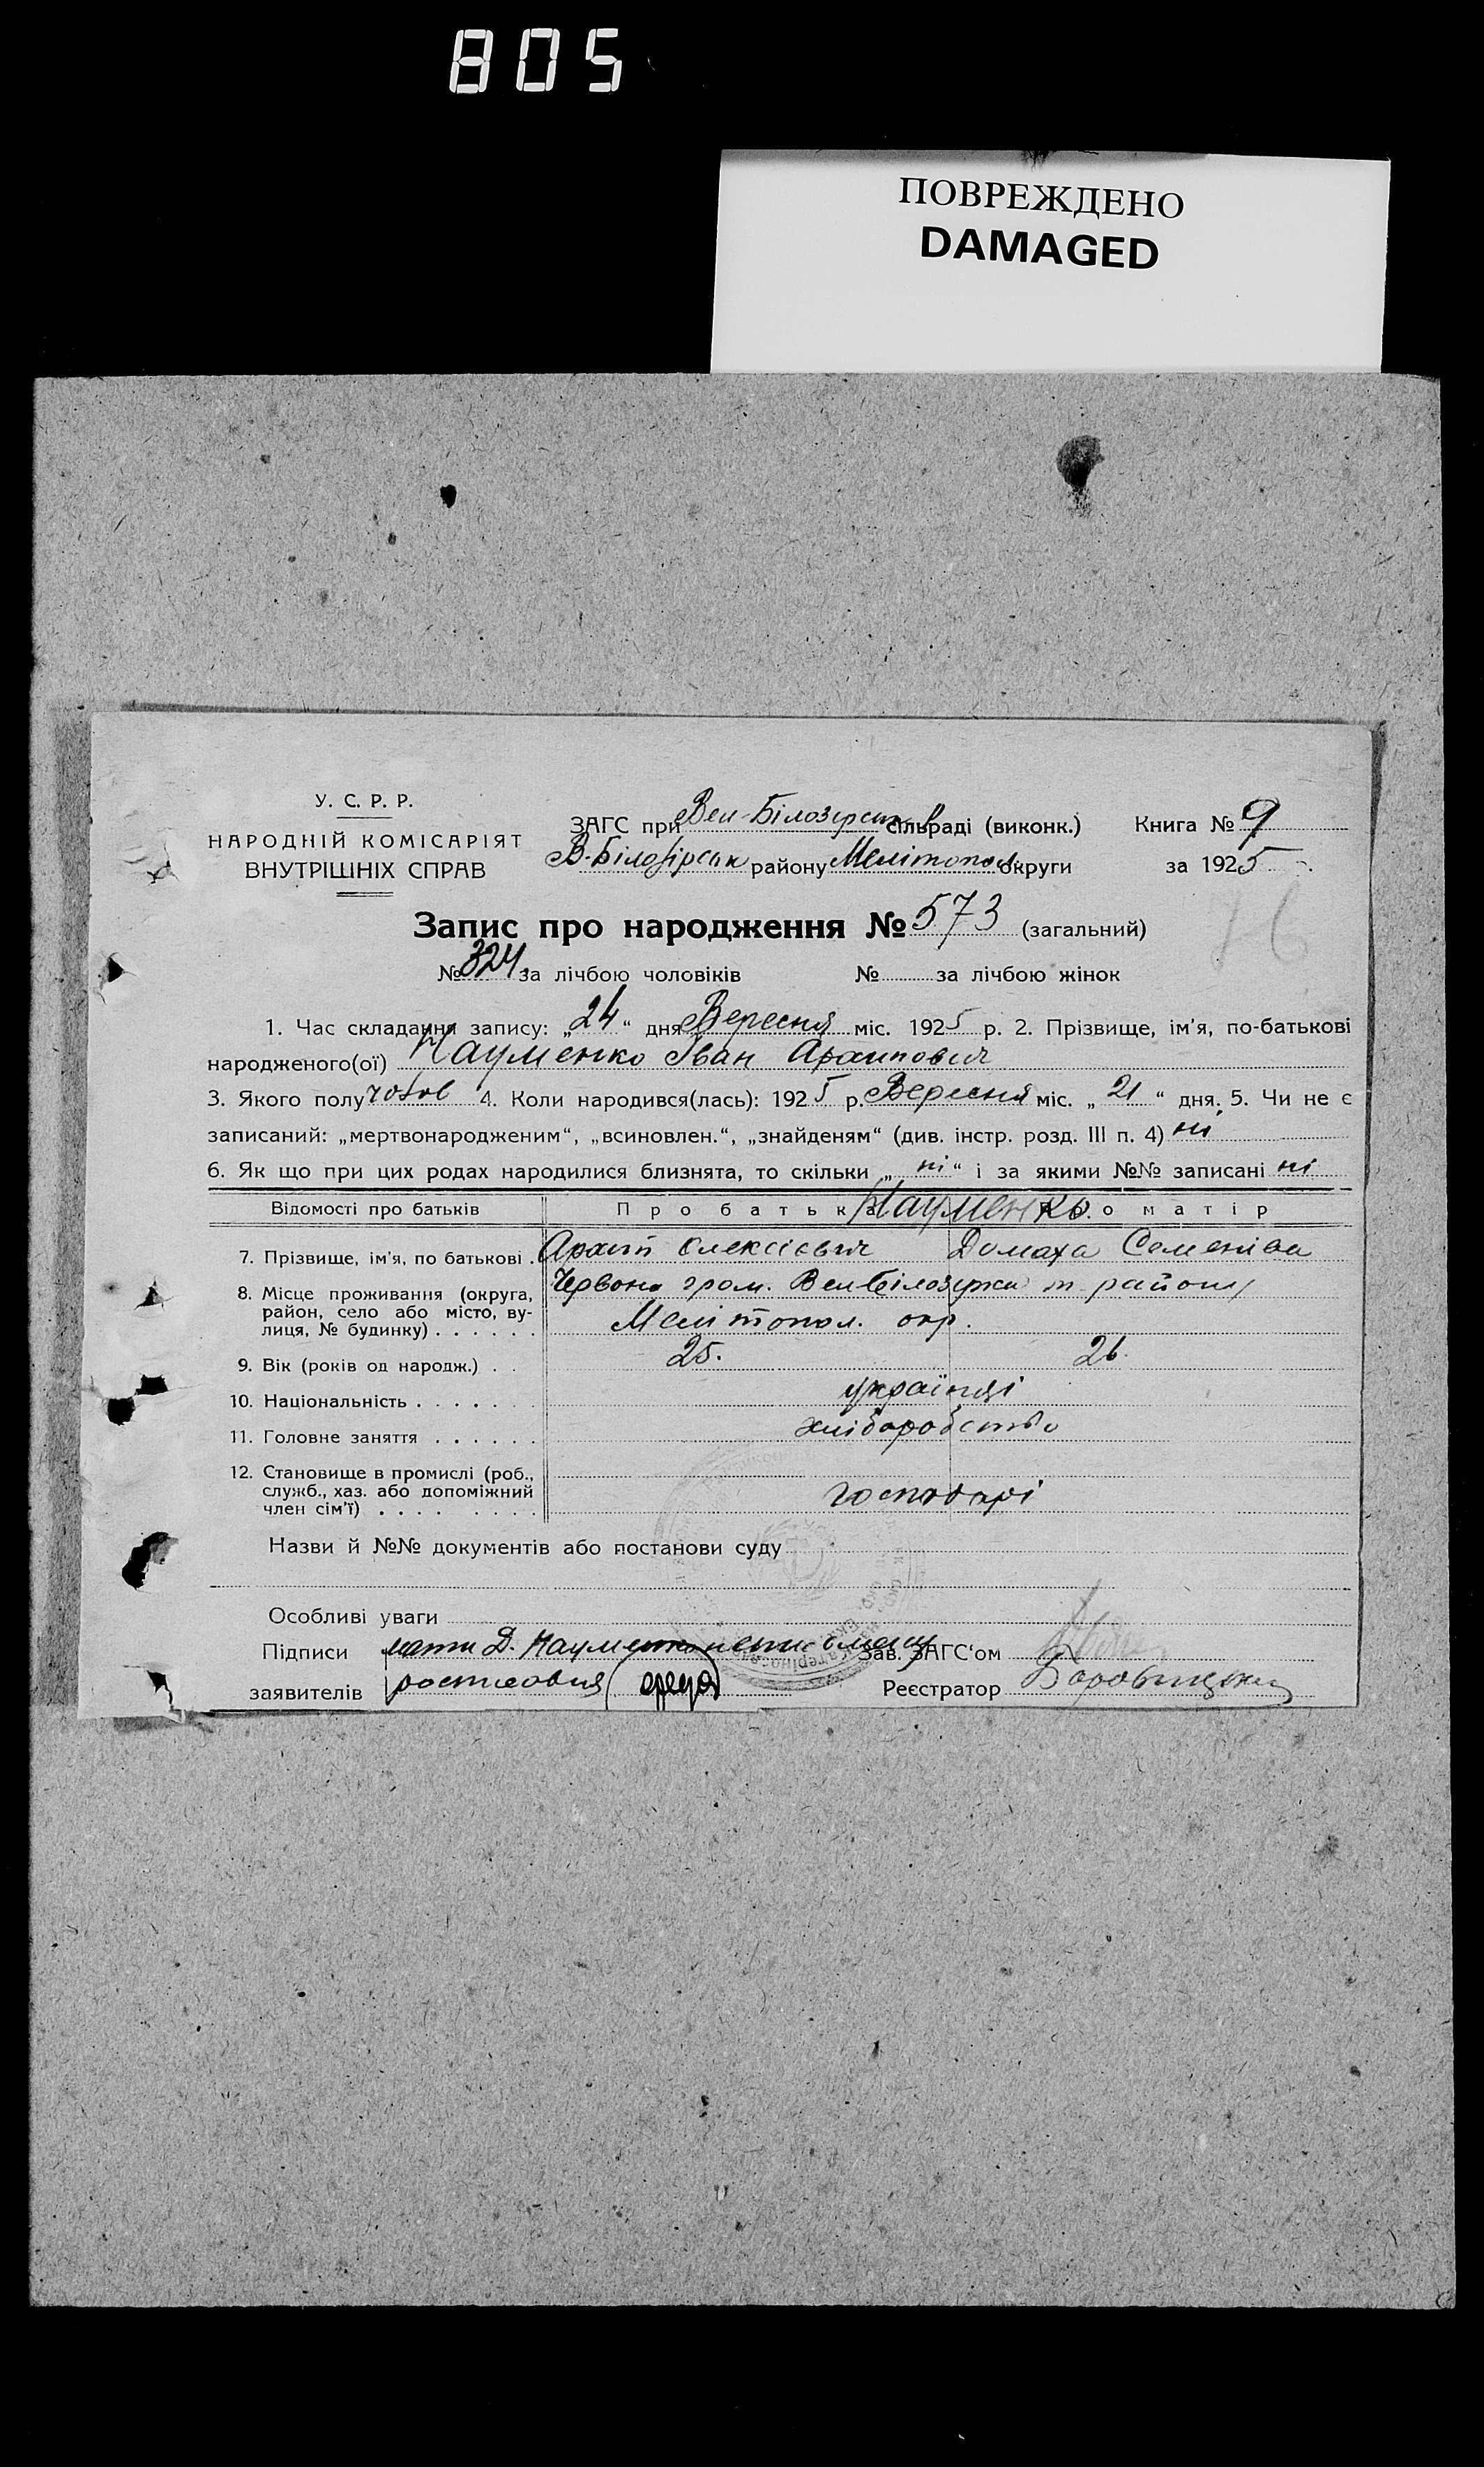 805
ПОВРЕЖДЕНО
DAMAGED
У. С. Р. Р.
НАРОДНІЙ КОМІСАРІЯТ
ВНУТРІШНІХ СПРАВ
ЗАГС при Вел-Білозірськ сільраді (виконк.)
В-Білозірськ району Мелітопол округи
Книга № 9
за 1925
76
Запис про народження № 573 (загальний)
№ 324 за лічбою чоловіків № за лічбою жінок
1. Час складання запису: „24“ дня Вересня міс. 1925 р. 2. Прізвище, ім’я, по-батькові
народженого(ої) Науменко Іван Архипович
3. Якого полу чолов 4. Коли народився(лась): 1925 р. Вересня міс. „21“ дня. 5. Чи не є
записаний: „мертвонародженим“, „всиновлен.“, „знайденям“ (див. інстр. розд. III п. 4) ні
6. Як що при цих родах народилися близнята, то скільки „ні“ і за якими №№ записані ні
Відомості про батьків Про батька Науменко Про матір
7. Прізвище, ім’я, по батькові . Архип Олексієвич Домаха Семенівна
8. Місце проживання (округа, Червона гром. Вел Білозірка т. району
район, село або місто, ву-
лиця, № будинку) . . . . . . Мелітопол. окр.
9. Вік (років од народж.) . . 25. 26.
10. Національність . . . . . . . українці
11. Головне заняття . . . . . . хліборобство
12. Становище в промислі (роб.,
служб., хаз. або допоміжний господарі
член сім’ї) . . . . . . . .
Назви й №№ документів або постанови суду
Особливі уваги
Підписи мати Д. Науменко неписьмен Зав. ЗАГС‘ом
заявителів росписовся Реєстратор